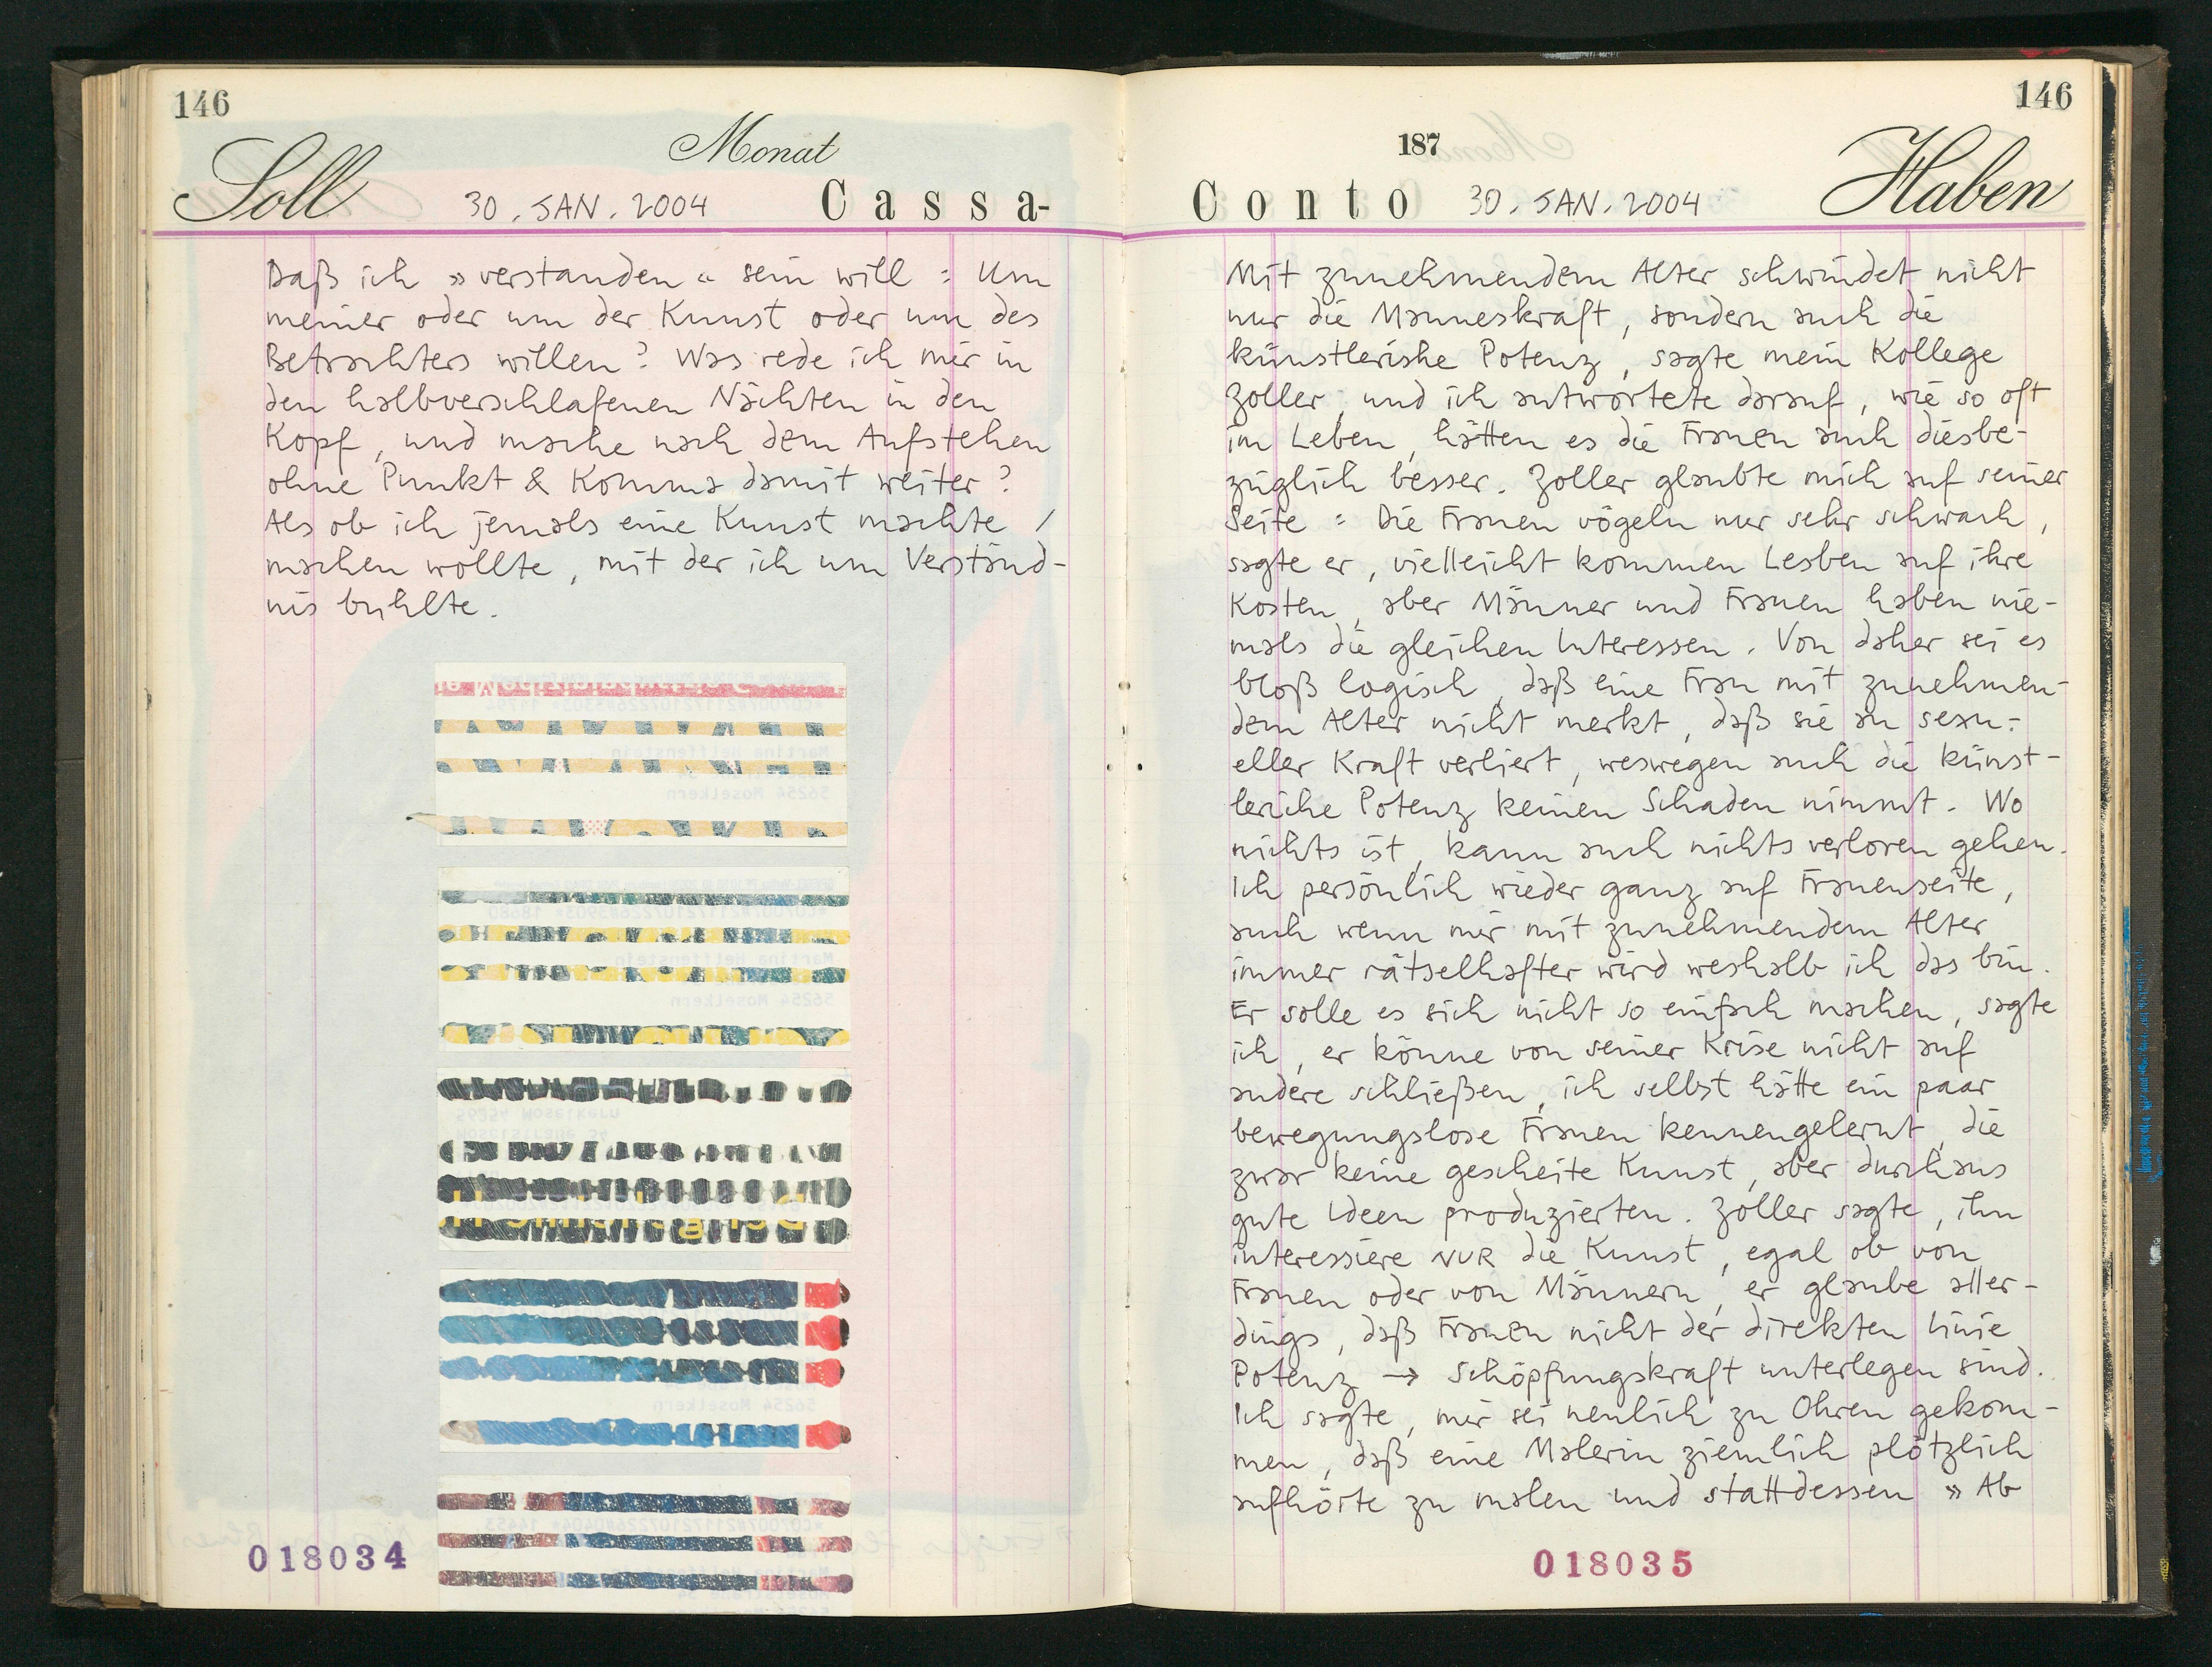 146
Soll
Monat
30. JAN. 2004
Cassa-
Daß ich »verstanden« sein will: Um
meiner oder um der Kunst oder um des
Betrachters willen? Was rede ich mir in
den halbverschlafenen Nächten in den
Kopf, und mache nach dem Aufstehen
ohne Punkt & Komma damit weiter?
Als ob ich jemals eine Kunst machte /
machen wollte, mit der ich um Verständ-
nis buhlte.
Martina Helffenstein
56254 Moselkern
Martina Helffenstein
56254 Moselkern
56254 Moselkern
56254 Moselkern
018034
146
187
Conto
30. JAN. 2004
Haben
Mit zunehmendem Alter schwindet nicht
nur die Manneskraft, sondern auch die
künstlerishe Potenz, sagte mein Kollege
Zoller, und ich antwortete darauf, wie so oft
im Leben, hätten es die Frauen auch diesbe-
züglich besser. Zoller glaubte mich auf seiner
Seite: Die Frauen vögeln nur sehr schwach,
sagte er, vielleicht kommen Lesben auf ihre
Kosten, aber Männer und Frauen haben nie-
mals die gleichen Interessen. Von daher sei es
bloß logisch, daß eine Frau mit zunehmen-
dem Alter nicht merkt, daß sie an sexu-
eller Kraft verliert, weswegen auch die künst-
leriche Potenz keinen Schaden nimmt. Wo
nichts ist, kann auch nichts verloren gehen.
Ich persönlich wieder ganz auf Frauenseite,
auch wenn mir mit zunehmendem Alter
immer rätselhafter wird weshalb ich das bin.
Er solle es sich nicht so einfach machen, sagte
ich, er könne von seiner Krise nicht auf
andere schließen, ich selbst hätte ein paar
bewegungslose Frauen kennengelernt, die
zwar keine gescheite Kunst, aber durchaus
gute Ideen produzierten. Zoller sagte, ihn
interessiere NUR die Kunst, egal ob von
Frauen oder von Männern, er glaube aller-
dings, daß Frauen nicht der direkten Linie
Potenz → Schöpfungskraft unterlegen sind.
Ich sagte, mir sei neulich zu Ohren gekom-
men, daß eine Malerin ziemlich plötzlich
aufhörte zu malen und stattdessen »Ab
018035